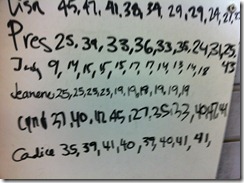 Lisa 45, 47, 41, 38, 39, 29, 29, 29,
Pres 25, 39, 33, 36, 33, 35, 24, 31, 25,
Judy 9, 14, 15, 15, 17, 17, 14, 13, 14, 18 43
Jeanene 25, 25, 25, 23, 19, 19, 18, 19, 19, 19
37, 40, 42, 45, 27, 35, 33, 40, 47, 44
Cadice 35, 39, 41, 40, 39, 40, 41, 41,